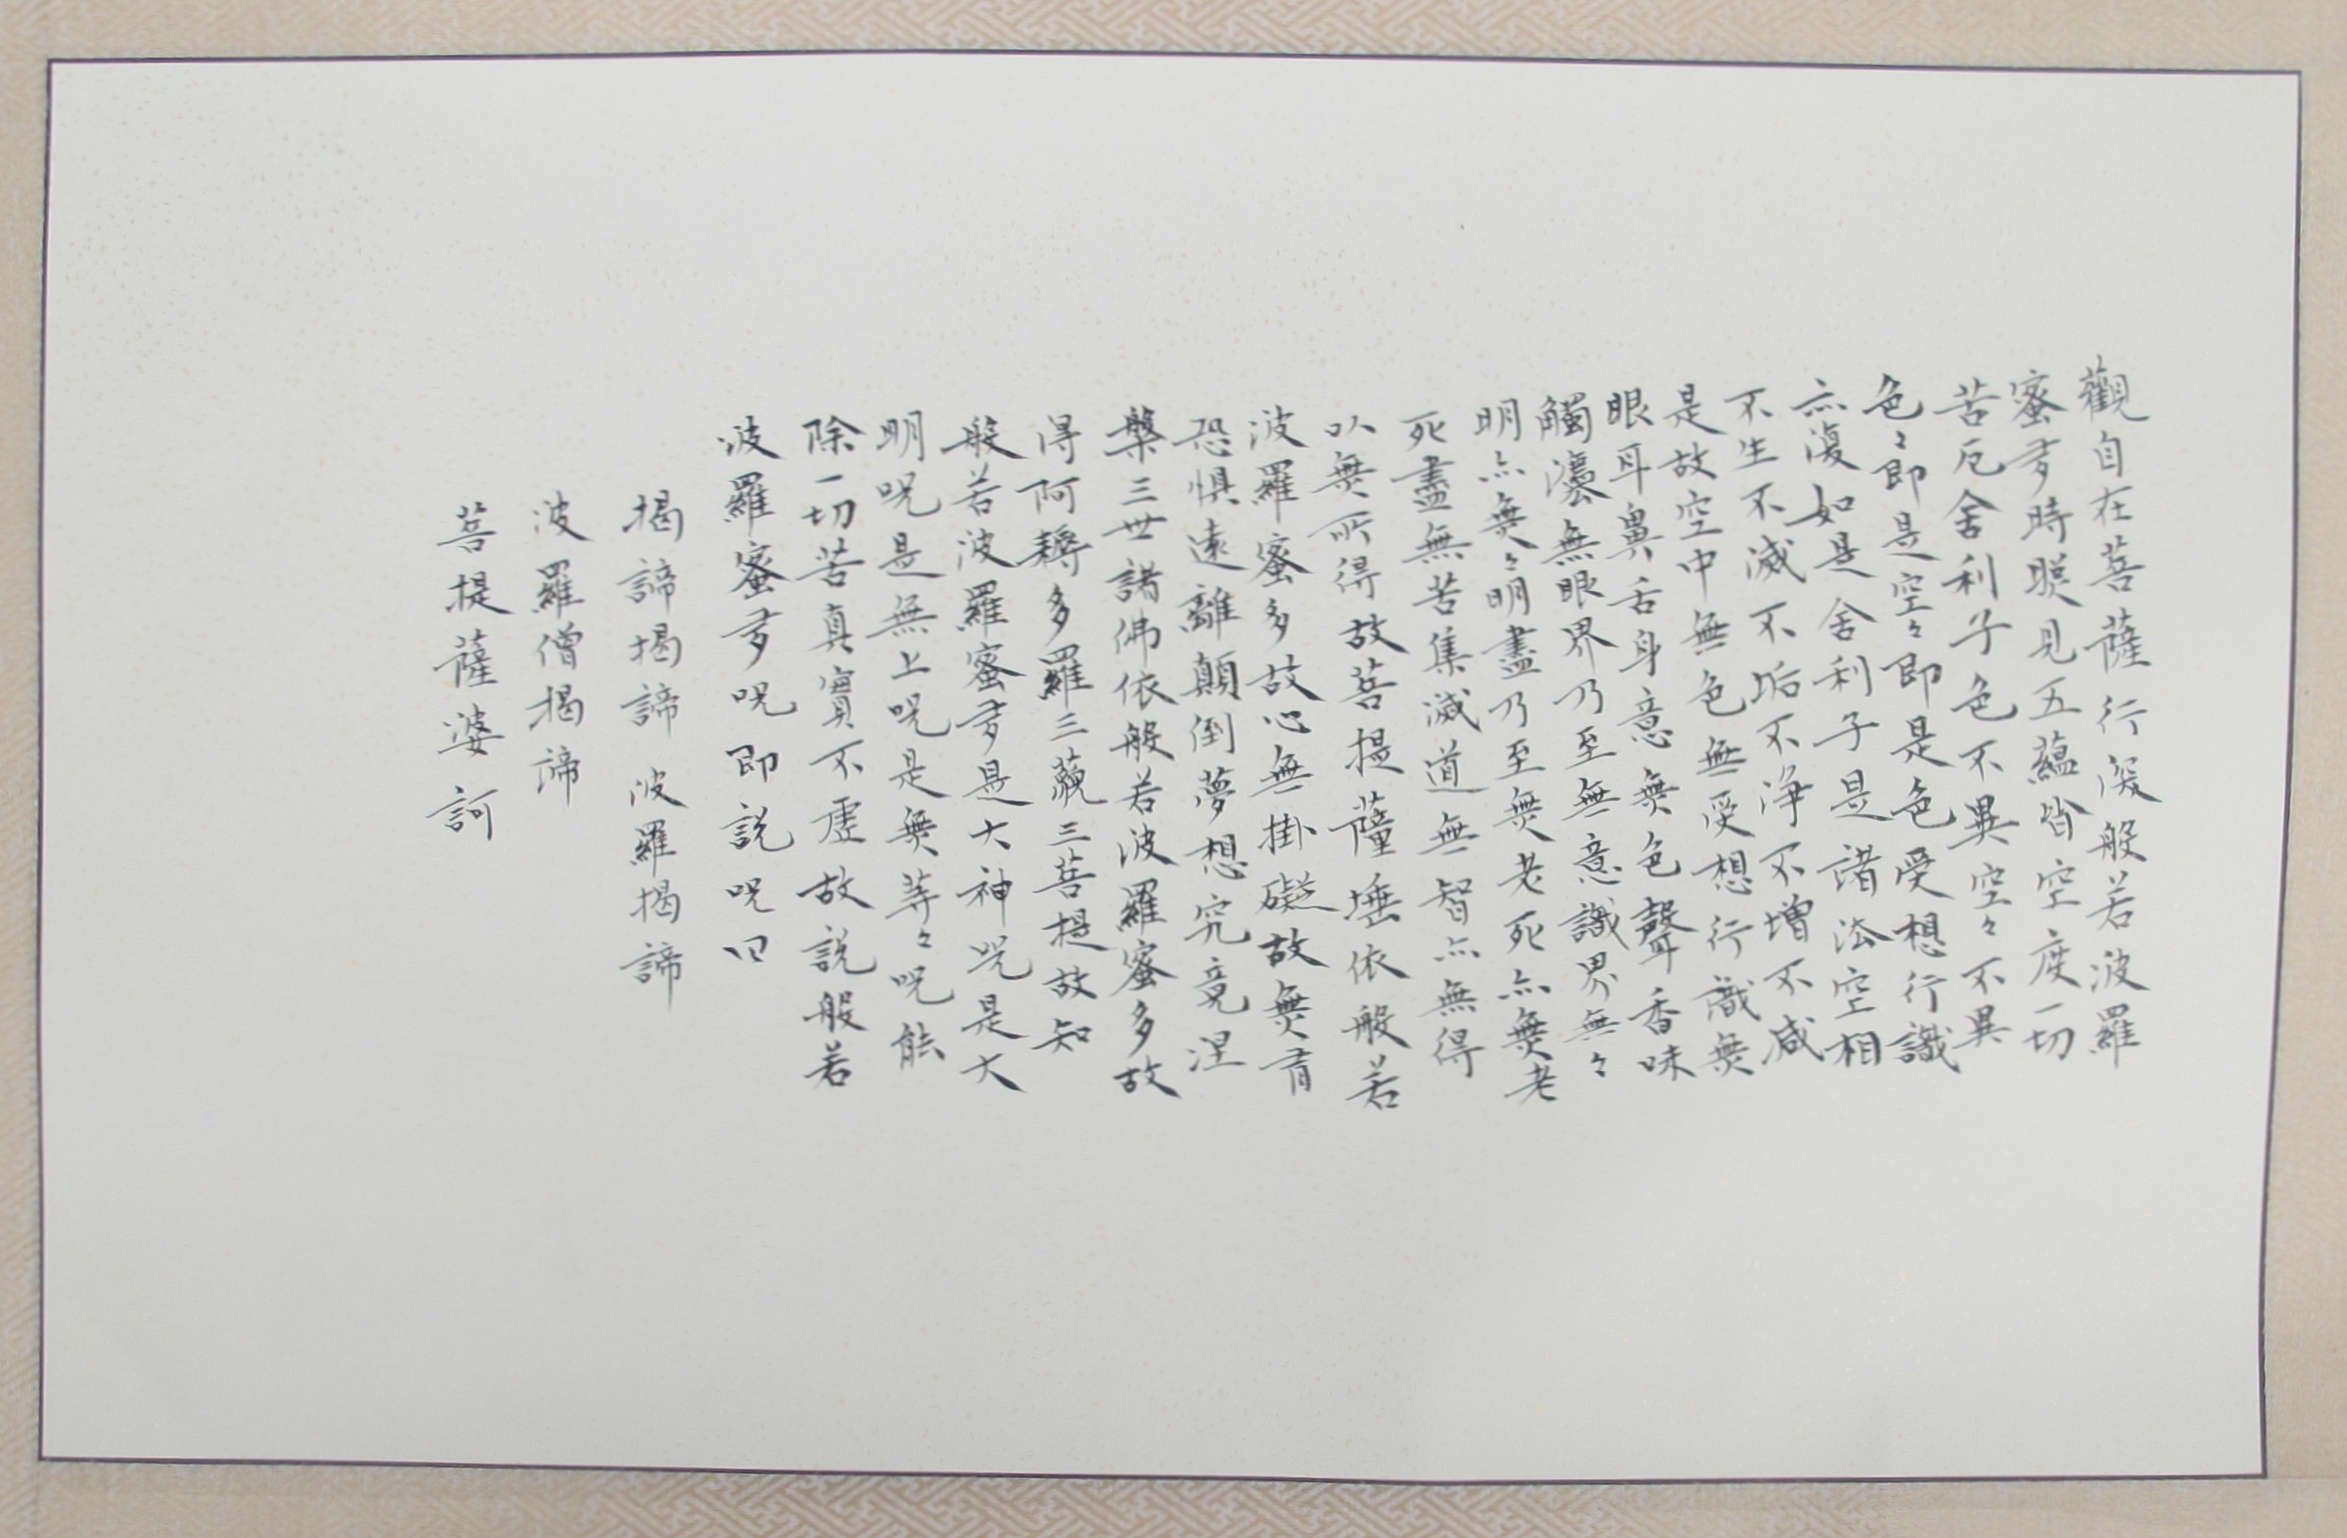 觀自在菩薩行深般若波羅
蜜多時照見五蘊皆空度一切
苦厄舍利子色不異空々不異
色々即是空々即是色受想行識
亦復如是舍利子是諸法空相
不生不滅不垢不淨不增不減
是故空中無色無受想行識無
眼耳鼻舌身意無色聲香味
觸法無眼界乃至無意識界無々
明亦無々明盡乃至無老死亦無老
死盡無苦集滅道無智亦無得
以無所得故菩提薩埵依般若
波羅蜜多故心無掛礙故無有
恐懼遠離顛倒夢想究竟涅
槃三世諸佛依般若波羅蜜多故
得阿耨多羅三藐三菩提故知
般若波羅蜜多是大神咒是大
明咒是無上咒是無等々咒能
除一切苦真實不虛故說般若
波羅蜜多咒即說咒曰
揭諦揭諦 波羅揭諦
波羅僧揭諦
菩提薩婆訶